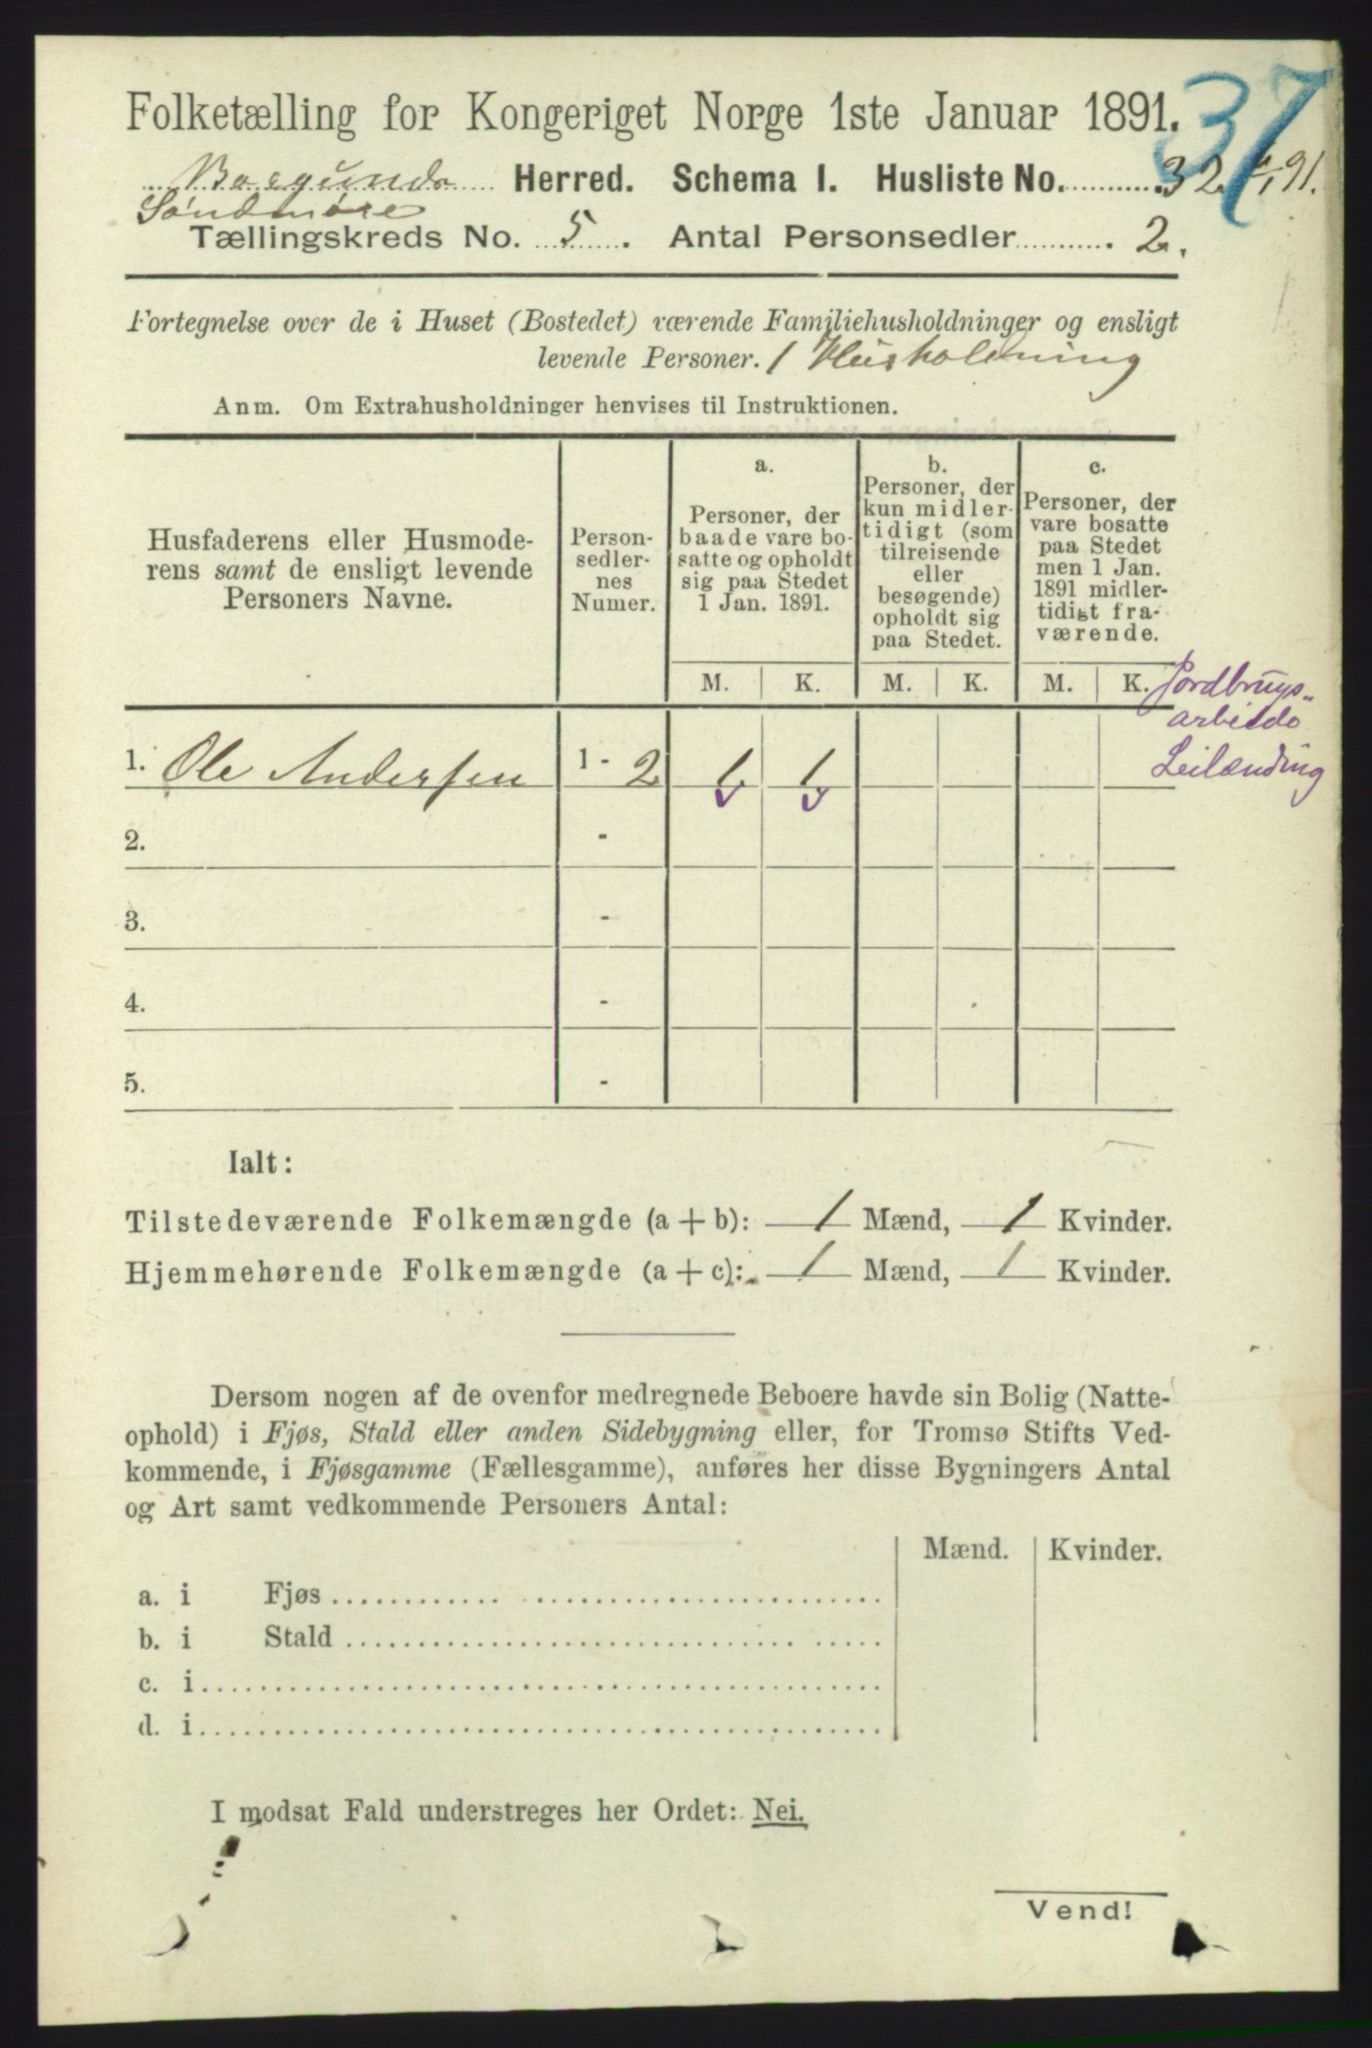 Folketælling for Kongeriget Norge 1ste Januar 1891.
37
Borgunds Herred. Schema I. Husliste No. 32
Søndmøre
Tællingskreds No. 5. Antal Personsedler 2.
Fortegnelse over de i Huset (Bostedet) værende Familiehusholdninger og ensligt
levende Personer. 1 Husholdning
Anm. Om Extrahusholdninger henvises til Instruktionen.
Husfaderens eller Husmode-
rens samt de ensligt levende
Personers Navne.
Person-
sedler-
nes
Numer.
a.
Personer, der
baade vare bo-
satte og opholdt
sig paa Stedet
1 Jan. 1891.
b.
Personer, der
kun midler-
tidigt (som
tilreisende
eller
besøgende)
opholdt sig
paa Stedet.
c.
Personer, der
vare bosatte
paa Stedet
men 1 Jan.
1891 midler-
tidigt fra-
værende.
M. K. M. K. M. K.
Jordbrugs-
arbeide
Leilænding
1. Ole Andersen 1 - 2 1 1
2. -
3. -
4. -
5. -
Ialt:
Tilstedeværende Folkemængde (a + b): 1 Mænd, 1 Kvinder.
Hjemmehørende Folkemængde (a + c): 1 Mænd, 1 Kvinder.
Dersom nogen af de ovenfor medregnede Beboere havde sin Bolig (Natte-
ophold) i Fjøs, Stald eller anden Sidebygning eller, for Tromsø Stifts Ved-
kommende, i Fjøsgamme (Fællesgamme), anføres her disse Bygningers Antal
og Art samt vedkommende Personers Antal:
Mænd. Kvinder.
a. i Fjøs
b. i Stald
c. i
d. i
I modsat Fald understreges her Ordet: Nei.
Vend!